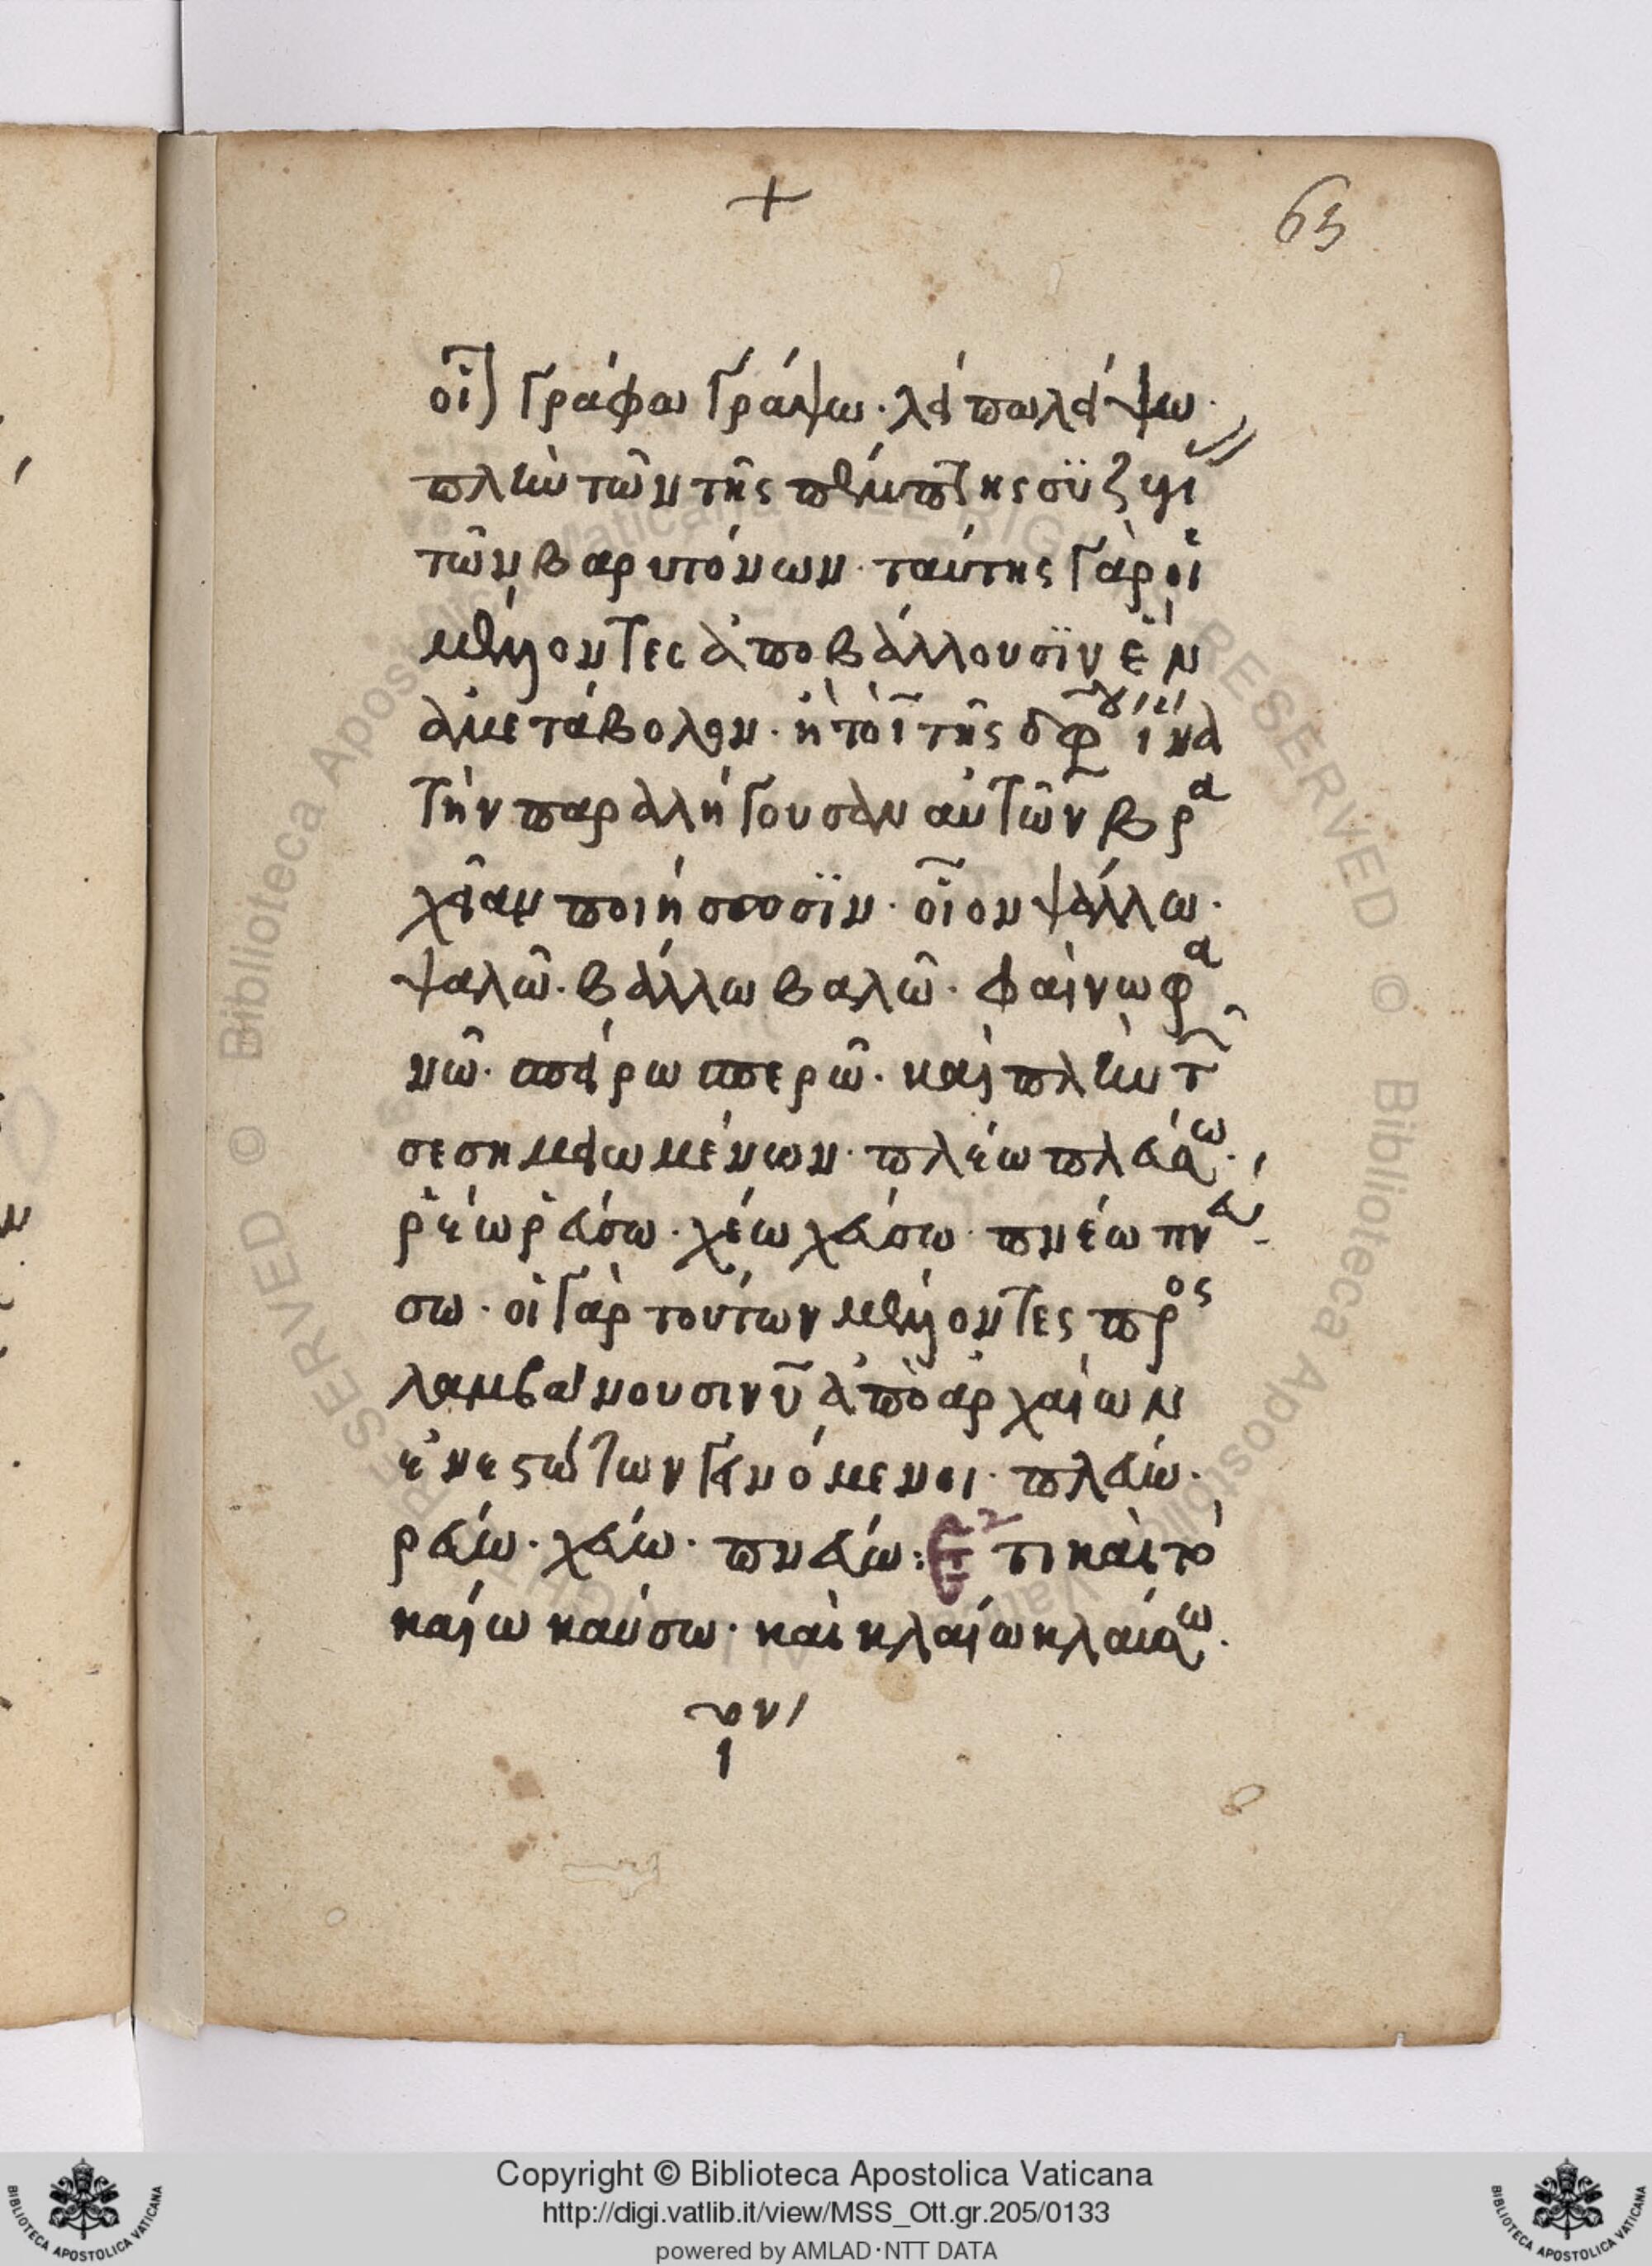 +
63
οἷ) γράφω γράψω· λείπω λείψω·
πλὴν τῶν τῆς πέμπτης συζυγί
τῶν βαρυτόνων· ταύτης γὰρ οἱ
μέλλοντες ἀποβάλλουσϊν ἓν
ἀμετάβολον· ἢ τὸ ῑ τῆς διφ ἵνα
τὴν παραλήγουσαν αὐτῶν βρα
χεῖαν ποιήσουσϊν· οἷον ψάλλω·
ψαλῶ· βάλλω βαλῶ· φαίνω φα
νῶ· σπείρω σπερῶ· καὶ πλὴν τ
σεσημειωμένων· πλέω πλεύσω·
ῥέω ῥεύσω· χέω χεύσω· πνέω πνεύ
σω· οἱ γὰρ τούτων μέλλοντες προς
λαμβάνουσιν ῡ ἀπὸ ἀρχαίων
ἐνεστώτων γενόμενοι· πλεύω·
ρεύω· χεύω· πνεύω: Ἔτι καὶ τὸ
καίω καύσω· καὶ κλαίω κλαύσω·
Copyright © Biblioteca Apostolica Vaticana
http://digi.vatlib.it/view/MSS_Ott.gr.205/0133
powered by AMLAD·NTT DATA